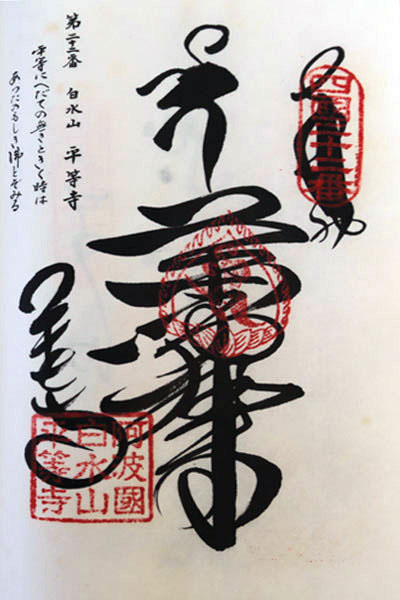 奉納
四國二十二番
阿波國
白水山
平等寺
第二十二番 白水山 平等寺
平等にへだての無きときく時は
あらたのもしき佛とぞみる